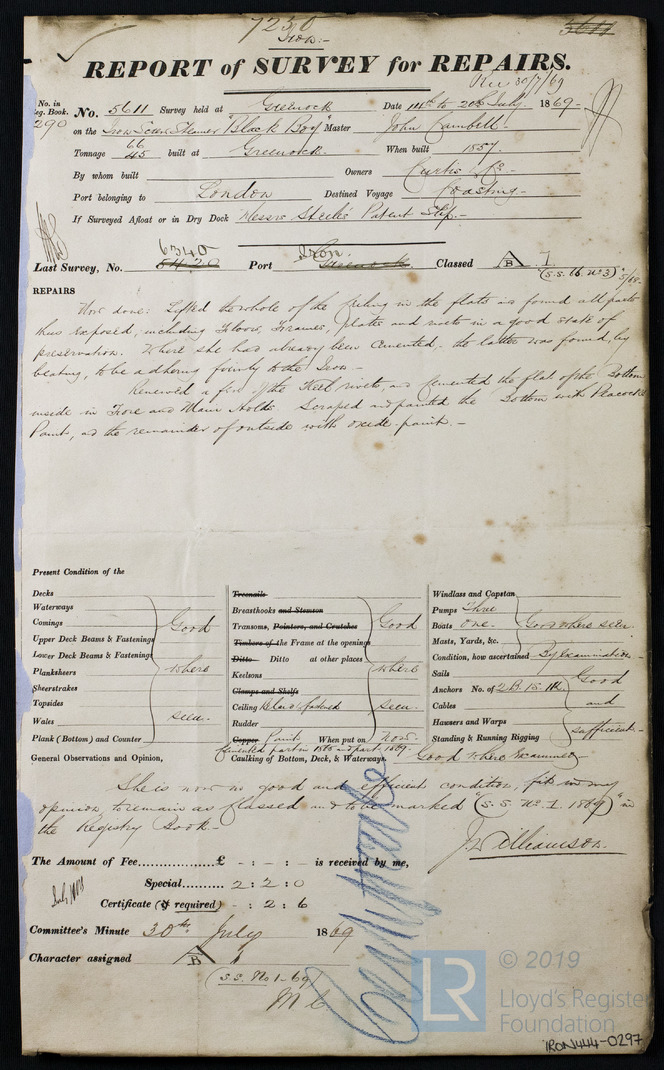 7250
5611
Iron:-
REPORT of SURVEY for REPAIRS.
Rec 30/7/69
No. in
eg. Book.
290
No. 5611 Survey held at Greenock Date 14th to 20th July 1869-
on the Iron Screw Steamer "Black Boy" Master John Cambell-
Tonnage 66 45 built at Greenock When built 1857-
By whom built Owners Curtis & Co-
Port belonging to London Destined Voyage Coasting-
If Surveyed Afloat or in Dry Dock Messrs Steele's Patent Slip-
Last Survey, No. 6340 5420 Port Iron Greenock Classed A B 1
(S.S. No 3) 5/68
REPAIRS
Now done: Lifted the whole of the ceiling in the flats and found all parts
thus exposed, including Floors, Frames, plates and rivets in a good state of
preservation. Where she had already been Cemented. the latter was found, by
beating, to be adhering firmly to the Iron-
Renewed a few of the Keel rivets, and Cemented the flat of the Bottom
inside in Fore and Main Holds Scraped and painted the Bottom with Peacock's
Paint, and the remainder of outside with oxide paint.-
Present Condition of the
Decks
Waterways
Comings
Upper Deck Beams & Fastenings
Lower Deck Beams & Fastenings
Planksheers
Sheerstrakes
Topsides
Wales
Plank (Bottom) and Counter
Good
where
seen.
Treenails
Breasthooks and Stemson
Transoms, Pointers, and Crutches
Timbers of the Frame at the openings
Ditto Ditto at other places
Keelsons
Clamps and Shelfs
Ceiling
Rudder
Copper Paint When put on Now.
Good
where
seen.
Cemented part in 1860 and part 1869.
Caulking of Bottom, Deck, & Waterways. Good where Examined-
Windlass and Capstan
Pumps Three
Boats One.
Masts, Yards, &c.
Good where seen
Condition, how ascertained By examination-
Sails
Anchors No. of 2 B. 1 S. 1 K.
Cables
Hawsers and Warps
Standing & Running Rigging
Good
and
sufficient-
General Observations and Opinion,
She is now in good and efficient condition, fit in my
opinion to remain as Classed and to be marked "(S.S. No. 1. 1869)" in
the Registry Book-
J Williamson.
The Amount of Fee.............. £ - : - : - is received by me,
Special........ 2 : 2 : 0
Certificate (if required) - : 2 : 6
Committee's Minute 30th July 1869
Character assigned A B 1
(S.S. No 1-69)
© 2019
LR
Lloyd's Register
Foundation
IRON444-0297